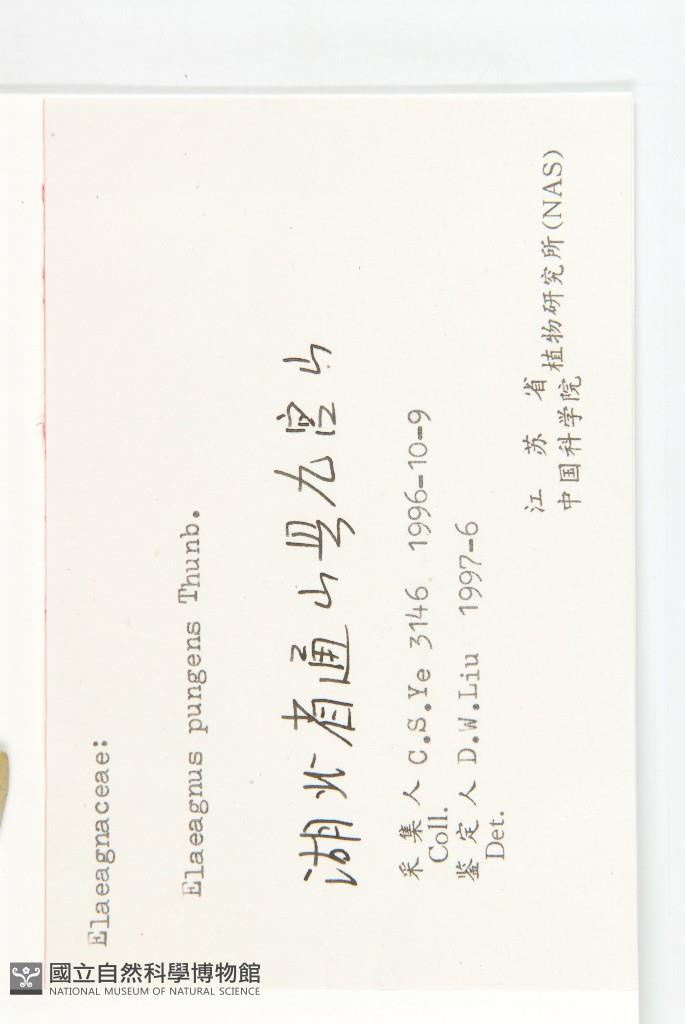 Elaeagnaceae:
Elaeagnus pungens Thunb.
湖北省通山县九宫山
采集人 C.S.Ye 3146 1996-10-9
Coll.
鉴定人 D.W.Liu 1997-6
Det.
江苏省
中国科学院植物研究所(NAS)
國立自然科學博物館
NATIONAL MUSEUM OF NATURAL SCIENCE